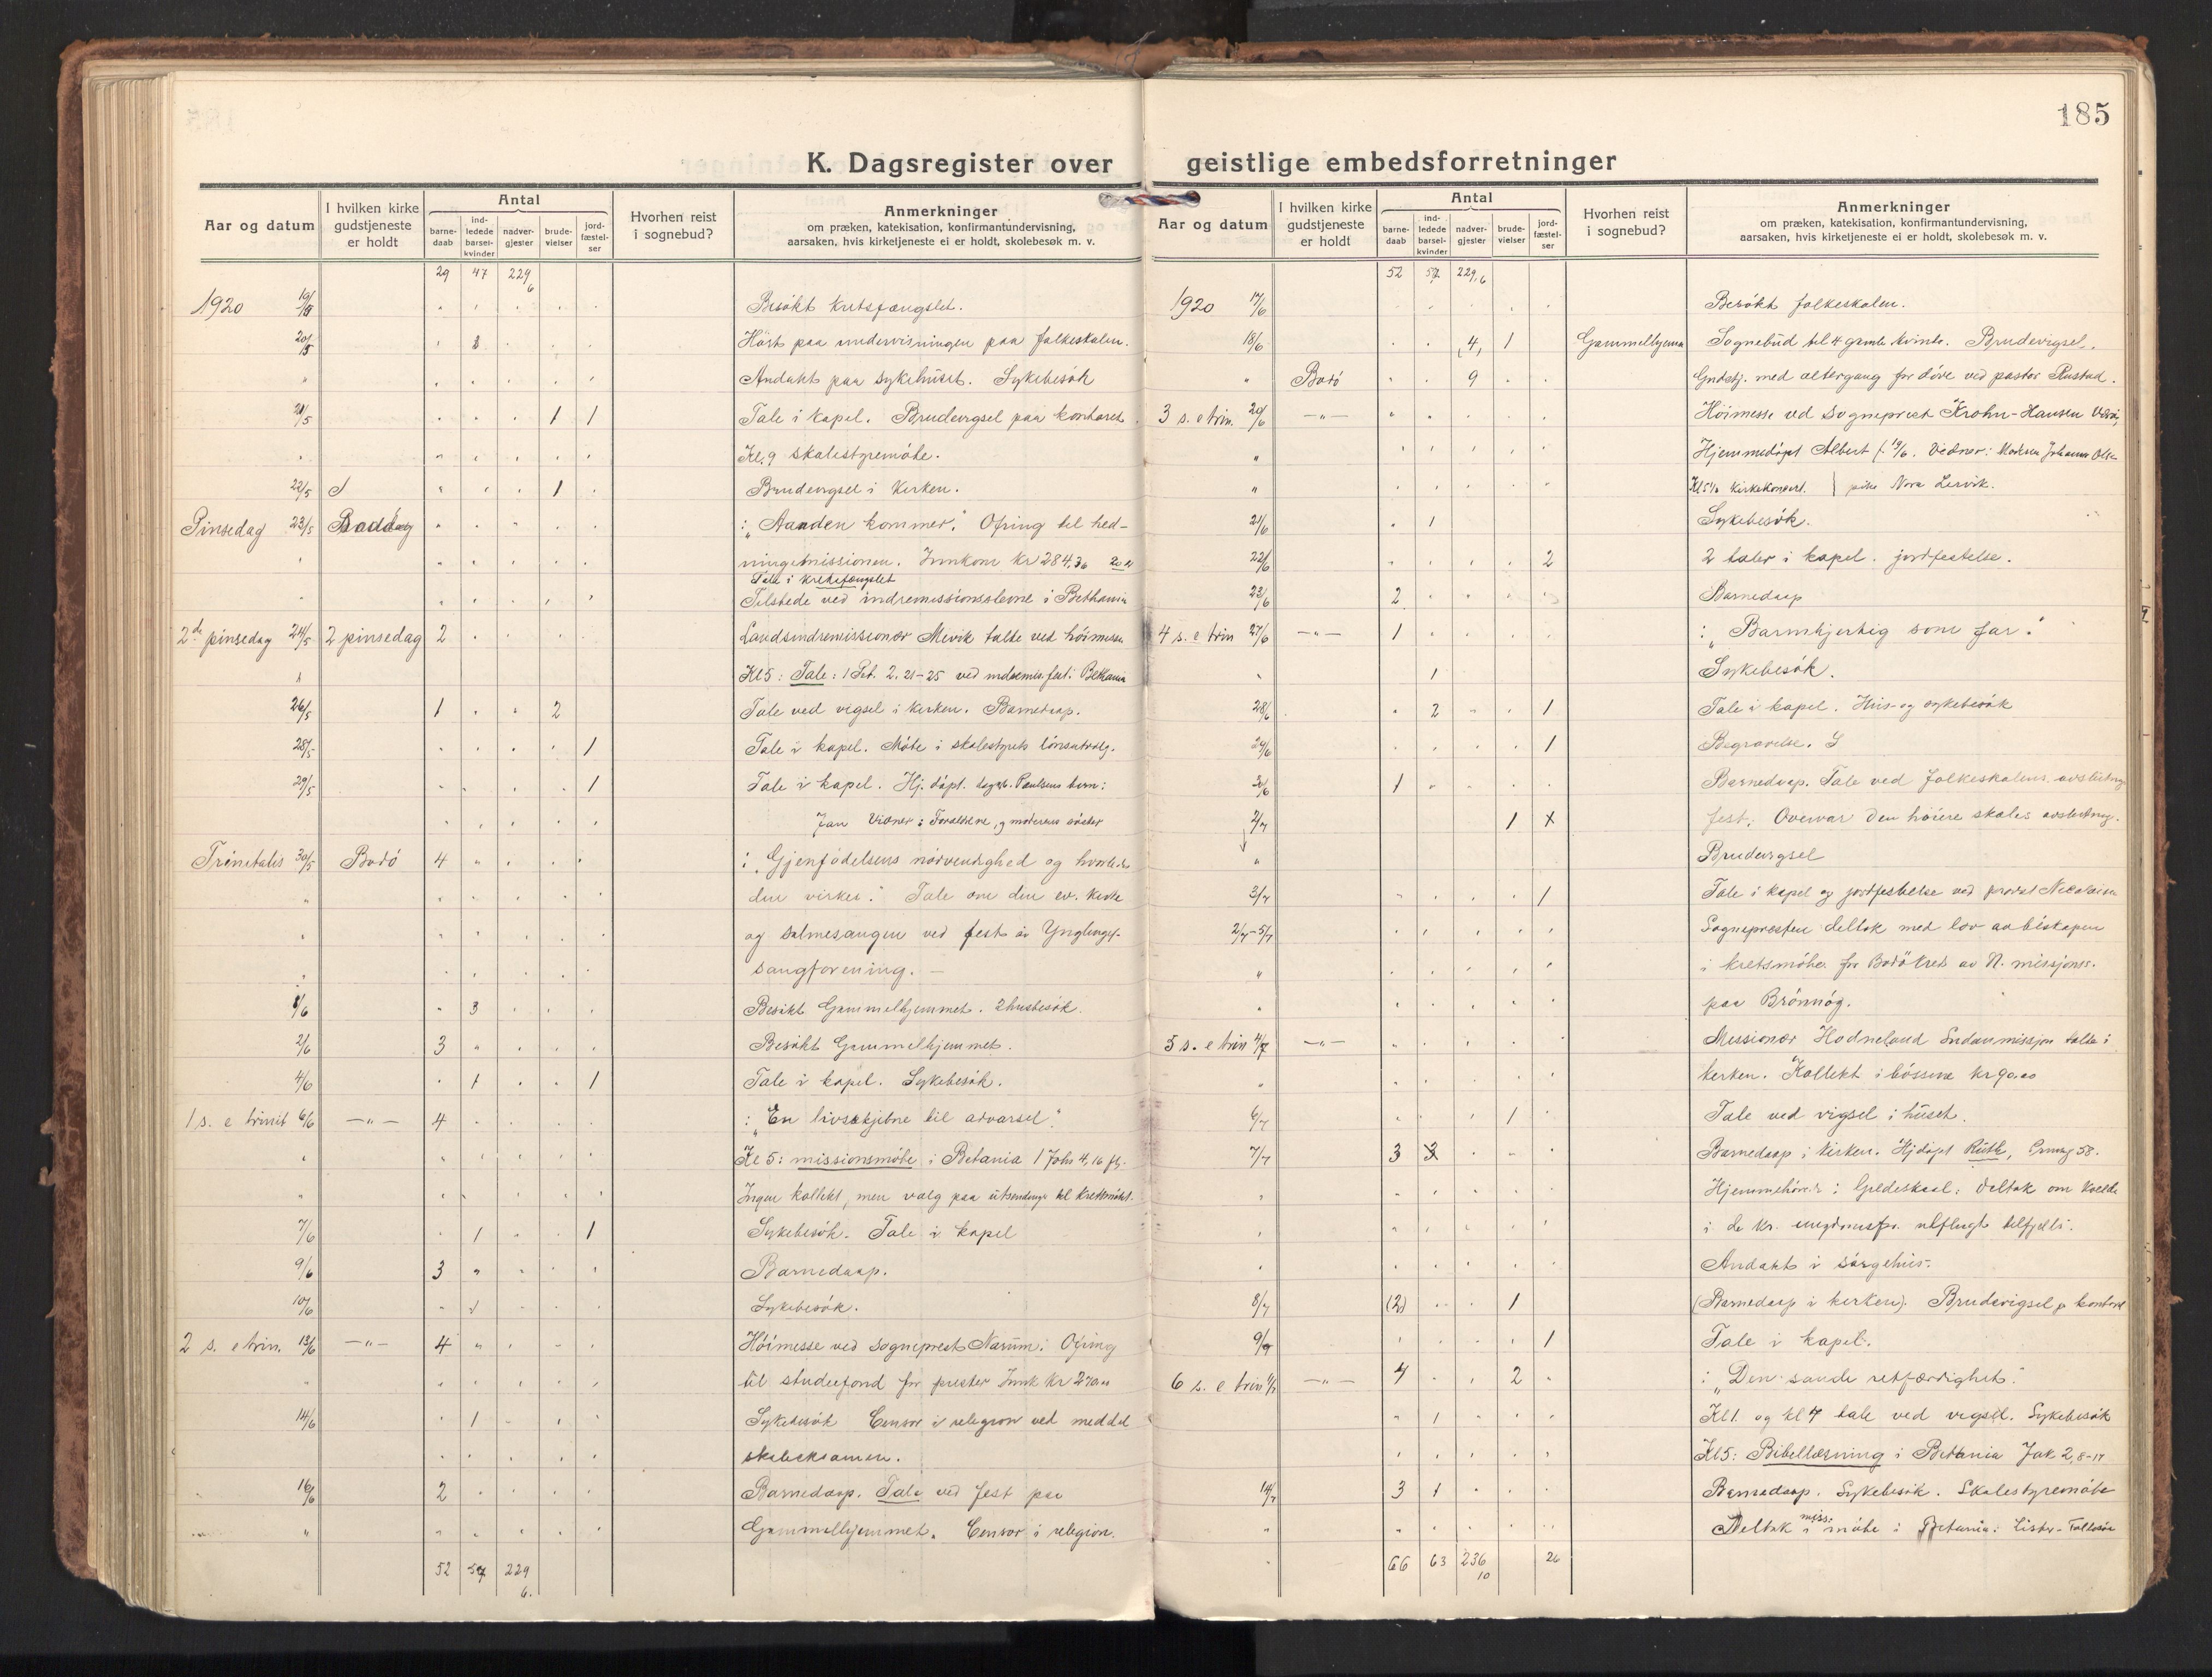 185
K. Dagsregister over geistlige embedsforretninger
Aar og datum
I hvilken kirke gudstjeneste er holdt
Antal
barne-daab
ind-ledede barsel-kvinder
nadver-gjester
brude-vielser
jord-fæstel-ser
Hvorhen reist i sognebud?
Anmerkninger
om præken, katekisation, konfirmantundervisning,
aarsaken, hvis kirketjeneste ei er holdt, skolebesøk m. v.
29 47 229 6
1920 19/5 Besøkt kretsfængslet.
20/5 Hørt paa undervisningen paa folkeskolen.
" Andakt paa sykehuset. Sykebesøk
21/5 1 1 Tale i kapel. Brudevigsel paa kontoret.
Kl. 9 skolestyremøte.
22/5 1 Brudevigsel i kirken.
Pinsedag 23/5 : "Aanden kommer." Ofring til hed-
ningemissionen. Innkom kr 284,36
Tale i kretsfængslet
Tilstede ved indremissionsstevne i Bethania
2den pinsedag 24/5 2 pinsedag 2 Landsindremissionær Mevik talte ved høimessen
Kl 5: Tale: 1 Pet. 2, 21-25 ved indremis.fest i Bethania
26/5 1 2 Tale ved vigsel i kirken. Barnedaap.
28/5 1 Tale i kapel. Møte i skolestyrets lønsutvalg.
29/5 1 Tale i kapel. Hj. døpt. Paulsens barn:
Jan Vidner: Forældrene, og moderens søster
Trinitatis 30/5 Bodø 4 : "Gjenfødelsens nødvendighed og hvorledes
den virker." Tale om den ev. kirke
og salmesangen ved fest av Ynglinges-
sangforening. —
1/6 3 Besøkt Gammelhjemmet. 2 husbesøk.
2/6 3 Besøkt Gammelhjemmet.
4/6 1 1 Tale i kapel. Sykebesøk.
1 s. e trinit 6/6 —"— 4 : "En livsskjebne til advarsel."
Kl 5: missionsmøte i Betania 1 Joh 4, 16 flg.
Ingen kollekt, men valg paa utsendinger til kretsmøtet.
7/6 1 1 Sykebesøk. Tale i kapel
9/6 3 Barnedaap.
10/6 1 Sykebesøk.
2 s. e trin. 13/6 —"— 4 Høimesse ved sogneprest Narum. Ofring
til studiefond for prester
14/6 1 Sykebesøk Censor i religion ved middel
skoleeksamen.
16/6 2 Barnedaap. Tale ved fest paa
" Gammelhjemmet. Censor i religion.
52 57 229 6.
Aar og datum
I hvilken kirke gudstjeneste er holdt
Antal
barne-daab
ind-ledede barsel-kvinder
nadver-gjester
brude-vielser
jord-fæstel-ser
Hvorhen reist i sognebud?
Anmerkninger
om præken, katekisation, konfirmantundervisning,
aarsaken, hvis kirketjeneste ei er holdt, skolebesøk m. v.
52 57 229,6
1920 17/6 Besøkt folkeskolen.
18/6 4 1 Gammelhjemmet Sognebud til 4 gamle kvinder. Brudevigsel.
" Bodø 9 Gudstj. med altergang for døve ved pastor Rustad.
3 s. e trin. 20/6 —"— Høimesse ved sogneprest Krohn-Hansen
" Hjemmedøpt Albert f. 19/6. Vidner: Johanna Olsen
" Kl 5½ kirkekonsert. pike Nora Lervik.
21/6 1 Sykebesøk.
22/6 2 2 taler i kapel. jordfestelse.
23/6 2 Barnedaap
4 s. e trin 27/6 —"— 1 : "Barmhjertig som far."
1 Sykebesøk.
28/6 2 1 Tale i kapel. Hus- og sykebesøk
29/6 1 Begravelse.
30/6 1 Barnedaap. Tale ved folkeskolens avslutnings
2/7 1 x fest. Overvar den høiere skoles avslutning.
" Brudevigsel
3/7 1 Tale i kapel og jordfestelse ved provst Nicolaisen
2/7-5/7 Sognepresten deltok med lov av biskopen
" i kretsmøte for Bodø krets av N. missjonss.
paa Brønnøy.
5 s. e trin 4/7 —"— Missionær Hodneland Sudanmissjon talte i
kirken. Kollekt i bøssene kr 90,00
6/7 1 Tale ved vigsel i huset.
7/7 3 Barnedaap i kirken. Hjdøpt Ruth,
Hjemmehørende i Gildeskaal. Deltok om kvelden
i de kr. ungdomsfor. utflugt tilfjells.
Andakt i sørgehus.
8/7 (2) 1 (Barnedaap i kirken). Brudevigsel p kontoret
9/7 1 Tale i kapel.
6 s. e trin 11/7 —"— 4 2 : "Den sande retfærdighet."
1 Kl 1. og kl 7 tale ved vigsel. Sykebesøk
Kl 5: Bibellæsning i Betania Jak 2, 8-17
14/7 3 1 Barnedaap. Sykebesøk. Skolestyremøte
" Deltok i miss. møte i Betania:
66 63 236 10 26